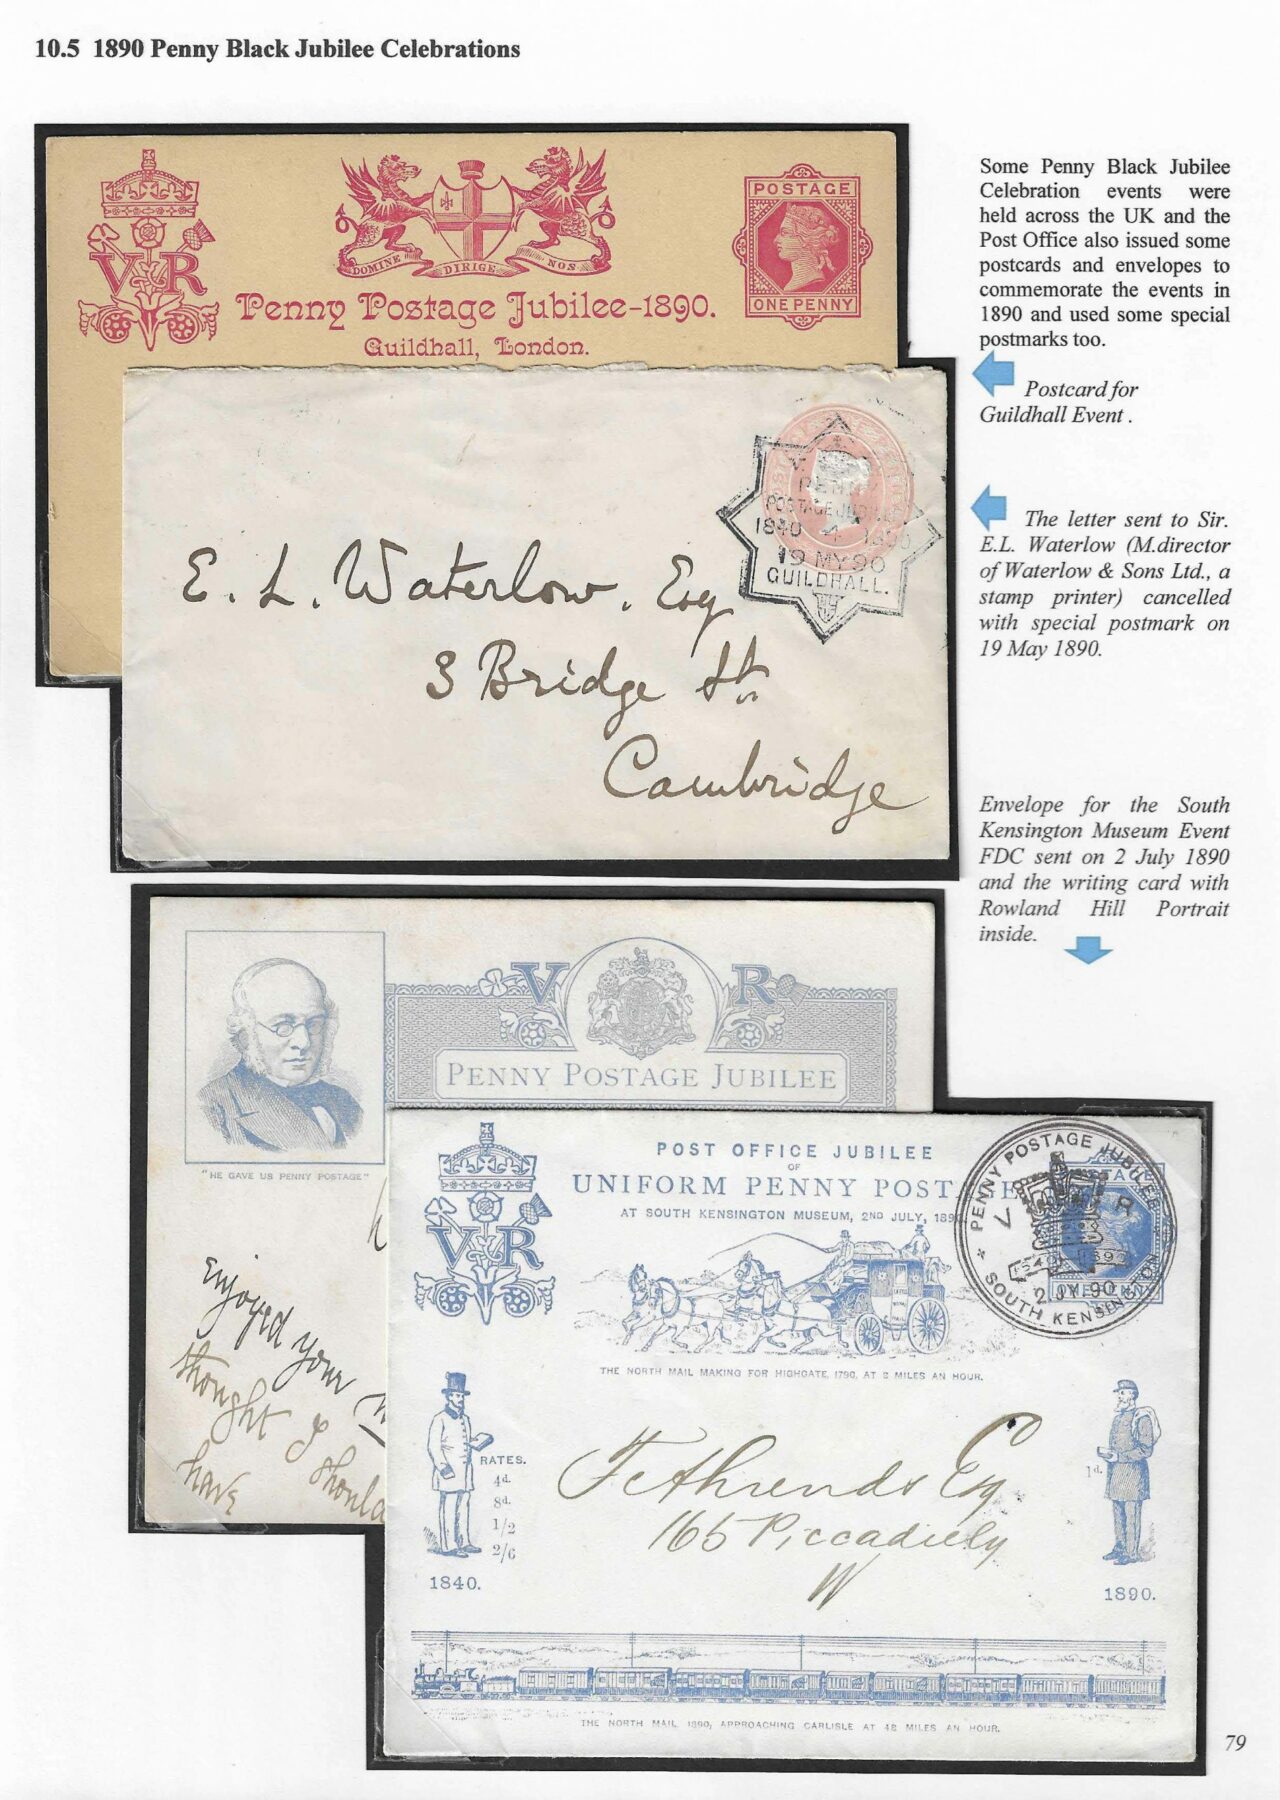 10.5 1890 Penny Black Jubilee Celebrations
DOMINE DIRIGE NOS
VR
Penny Postage Jubilee-1890.
Guildhall, London.
POSTAGE
ONE PENNY
Some Penny Black Jubilee
Celebration events were
held across the UK and the
Post Office also issued some
postcards and envelopes to
commemorate the events in
1890 and used some special
postmarks too.
Postcard for
Guildhall Event .
The letter sent to Sir.
E.L. Waterlow (M.director
of Waterlow & Sons Ltd., a
stamp printer) cancelled
with special postmark on
19 May 1890.
V.
PENNY
POSTAGE JUBILEE
1840 1890
19 MY 90
GUILDHALL.
E. L. Waterlow. Esq
3 Bridge St.
Cambridge
Envelope for the South
Kensington Museum Event
FDC sent on 2 July 1890
and the writing card with
Rowland Hill Portrait
inside.
V R
PENNY POSTAGE JUBILEE
"HE GAVE US PENNY POSTAGE"
enjoyed your
thought I should
have
POST OFFICE JUBILEE
OF
UNIFORM PENNY POSTAGE
AT SOUTH KENSINGTON MUSEUM, 2ND JULY, 1890.
VR
PENNY POSTAGE JUBILEE
V R
1840 1890
2 JY. 90
SOUTH KENSINGTON
THE NORTH MAIL MAKING FOR HIGHGATE, 1790, AT 8 MILES AN HOUR.
RATES.
4d.
8d.
1/2
2/6
1840.
1d.
1890.
F Ahrends Esq
165 Piccadilly
W
THE NORTH MAIL 1890, APPROACHING CARLISLE AT 48 MILES AN HOUR.
79